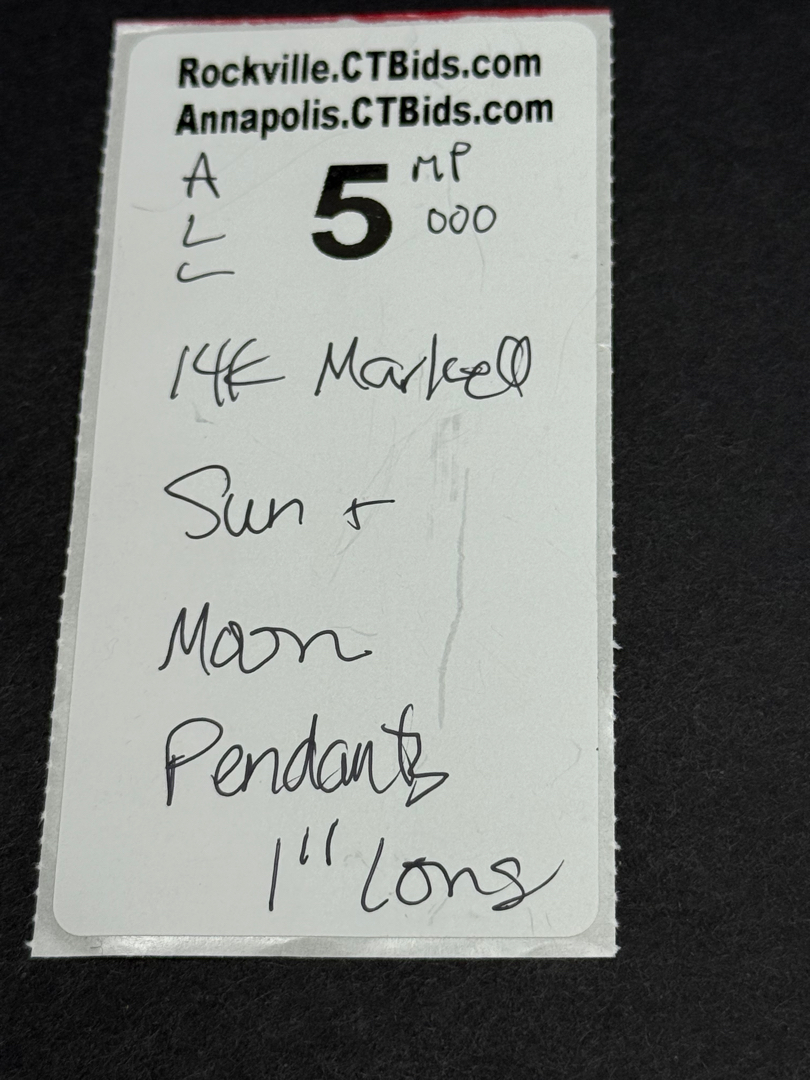 Rockville.CTBids.com
Annapolis.CTBids.com
A
L
C
5
MP
000
14K Marked
Sun +
Moon
Pendants
1" Long